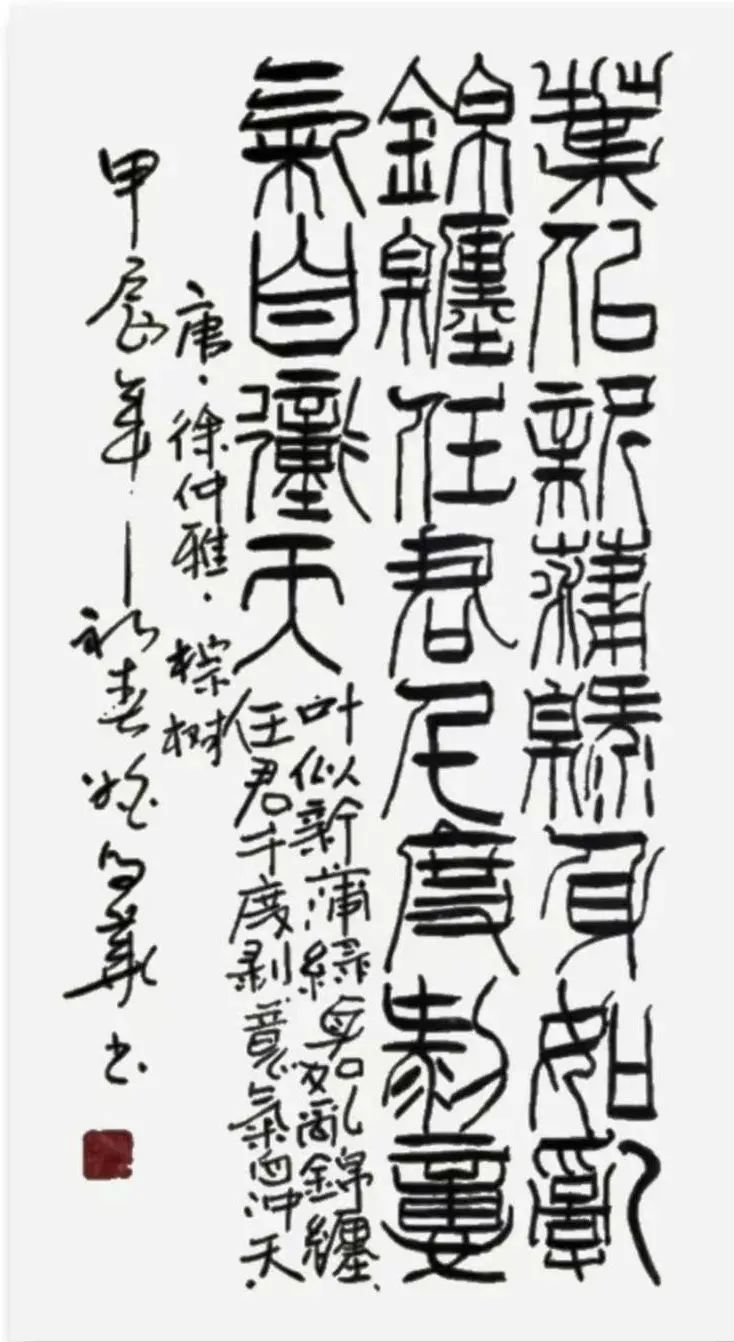 葉似新蒲綠身如亂
錦纏任君千度剝意
氣自衝天
叶似新蒲綠身如亂錦纏.
任君千度剥意氣自冲天.
唐·徐仲雅·棕树
甲辰年一初春 书